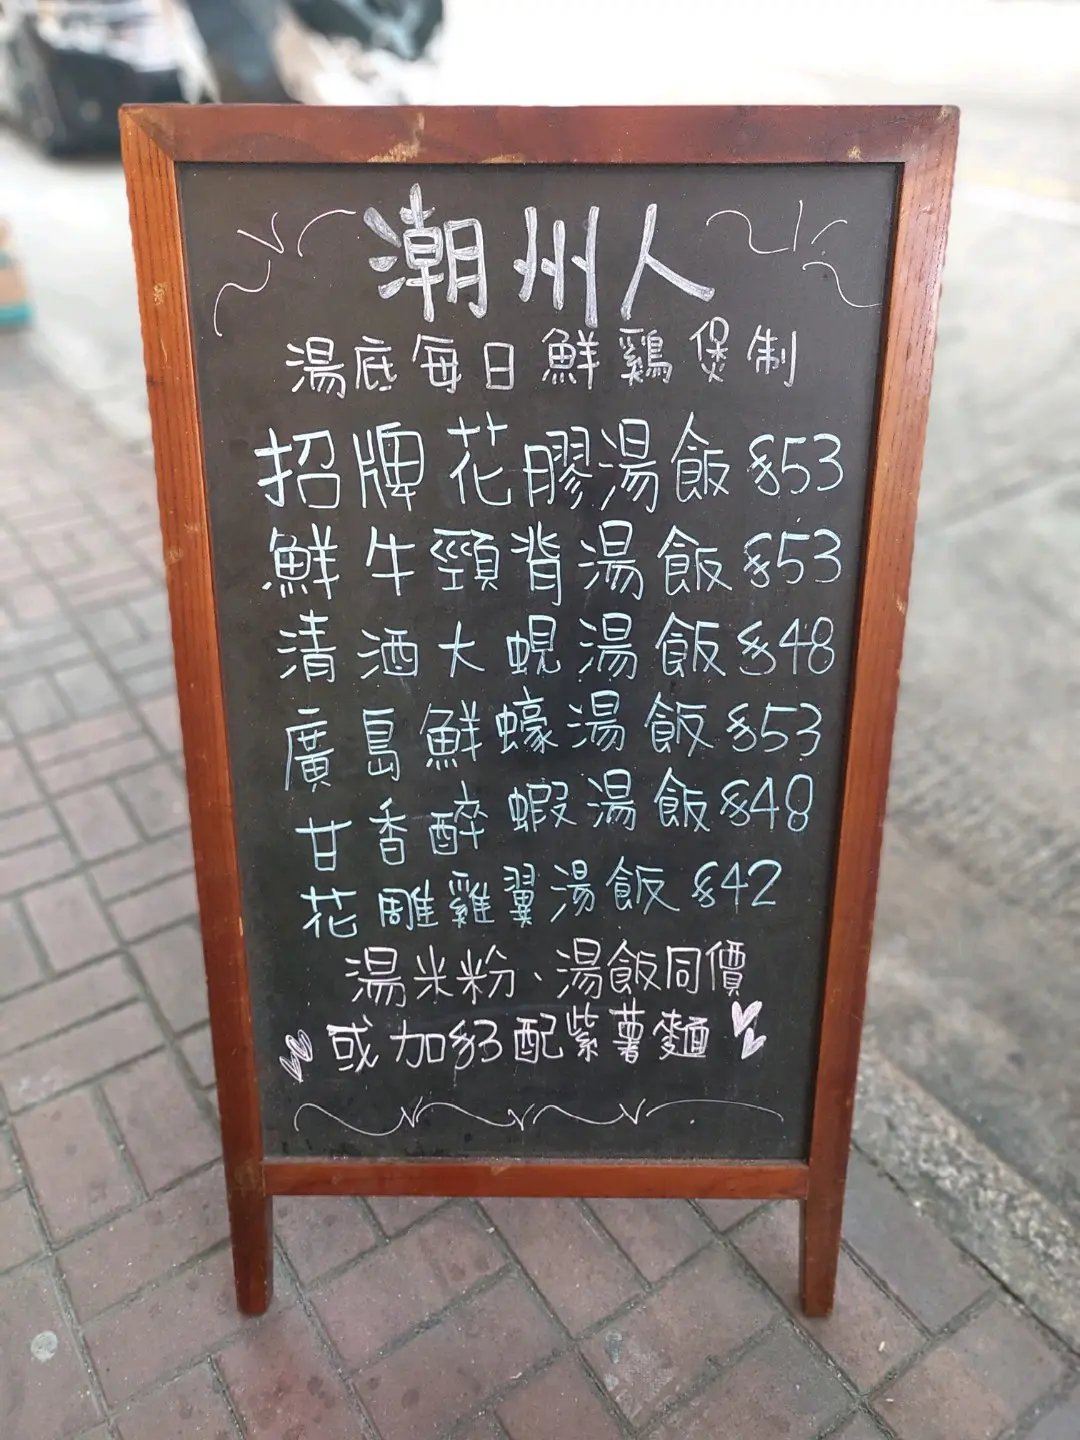 潮州人
湯底每日鮮鷄煲制
招牌花膠湯飯$53
鮮牛頸背湯飯$53
清酒大蜆湯飯$48
廣島鮮蠔湯飯$53
甘香醉蝦湯飯$48
花雕雞翼湯飯$42
湯米粉、湯飯同價
或加$3配紫薯麵